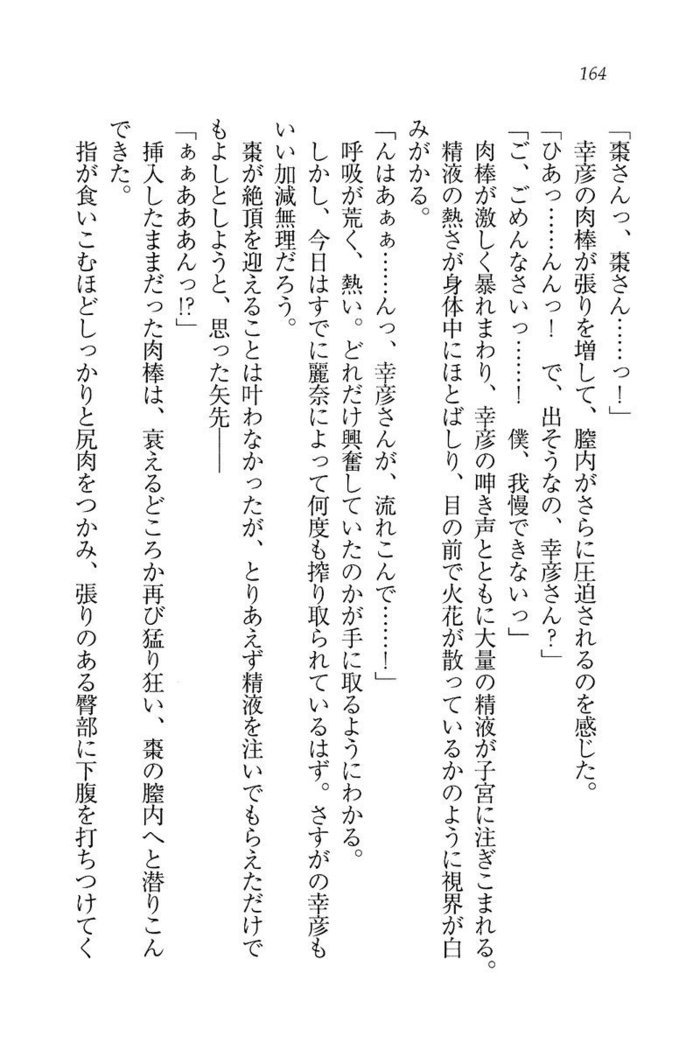 164
「棗さんっ、棗さん……っ！」
幸彦の肉棒が張りを増して、膣内がさらに圧迫されるのを感じた。
「ひあっ……んんっ！　で、出そうなの、幸彦さん？」
「ご、ごめんなさいっ……！　僕、我慢できないっ」
肉棒が激しく暴れまわり、幸彦の呻き声とともに大量の精液が子宮に注ぎこまれる。
精液の熱さが身体中にほとばしり、目の前で火花が散っているかのように視界が白
みがかる。
「んはあぁぁ……んっ、幸彦さんが、流れこんで……！」
呼吸が荒く、熱い。どれだけ興奮していたのかが手に取るようにわかる。
しかし、今日はすでに麗奈によって何度も搾り取られているはず。さすがの幸彦も
いい加減無理だろう。
棗が絶頂を迎えることは叶わなかったが、とりあえず精液を注いでもらえただけで
もよしとしようと、思った矢先――
「ぁぁあああんっ!?」
挿入したままだった肉棒は、衰えるどころか再び猛り狂い、棗の膣内へと潜りこん
できた。
指が食いこむほどしっかりと尻肉をつかみ、張りのある臀部に下腹を打ちつけてく